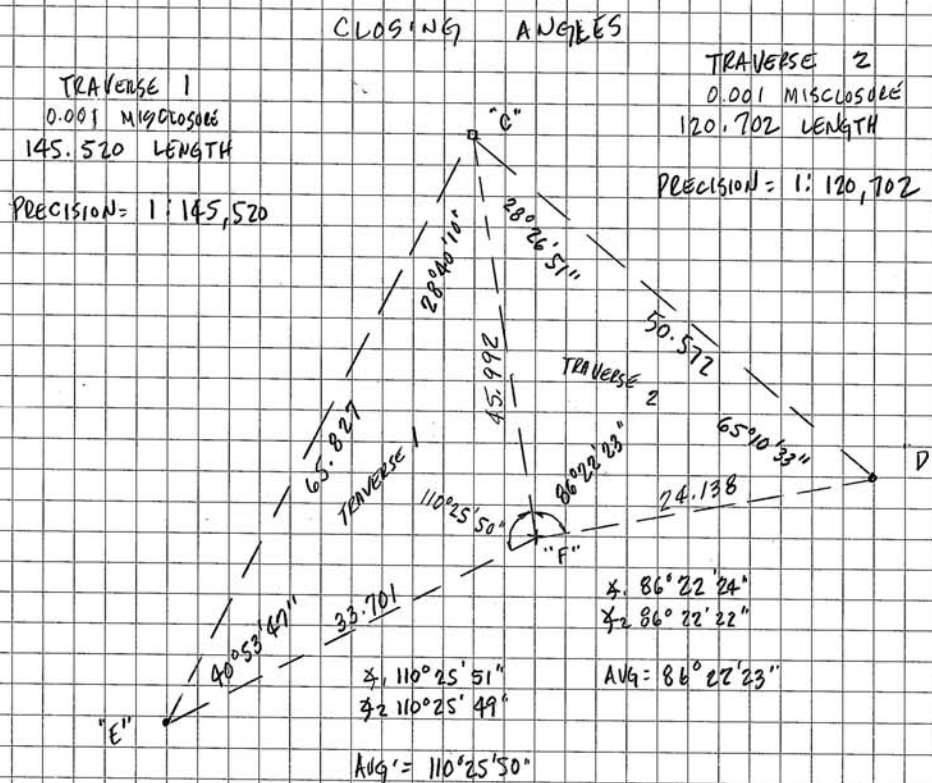 CLOSING ANGLES
TRAVERSE 1
0.001 MISCLOSURE
145.520 LENGTH
PRECISION= 1:145,520
TRAVERSE 2
0.001 MISCLOSURE
120.702 LENGTH
PRECISION= 1:120,702
"C"
28°40'10"
28°26'51"
45.992
50.572
TRAVERSE
2
65.827
TRAVERSE 1
110°25'50"
86°22'23"
65°10'33"
"D
24.138
"F"
33.701
40°53'47"
"E"
∡. 86°22'24"
∡2 86°22'22"
AVG= 86°22'23"
∡1 110°25'51"
∡2 110°25'49"
AVG'= 110°25'50"